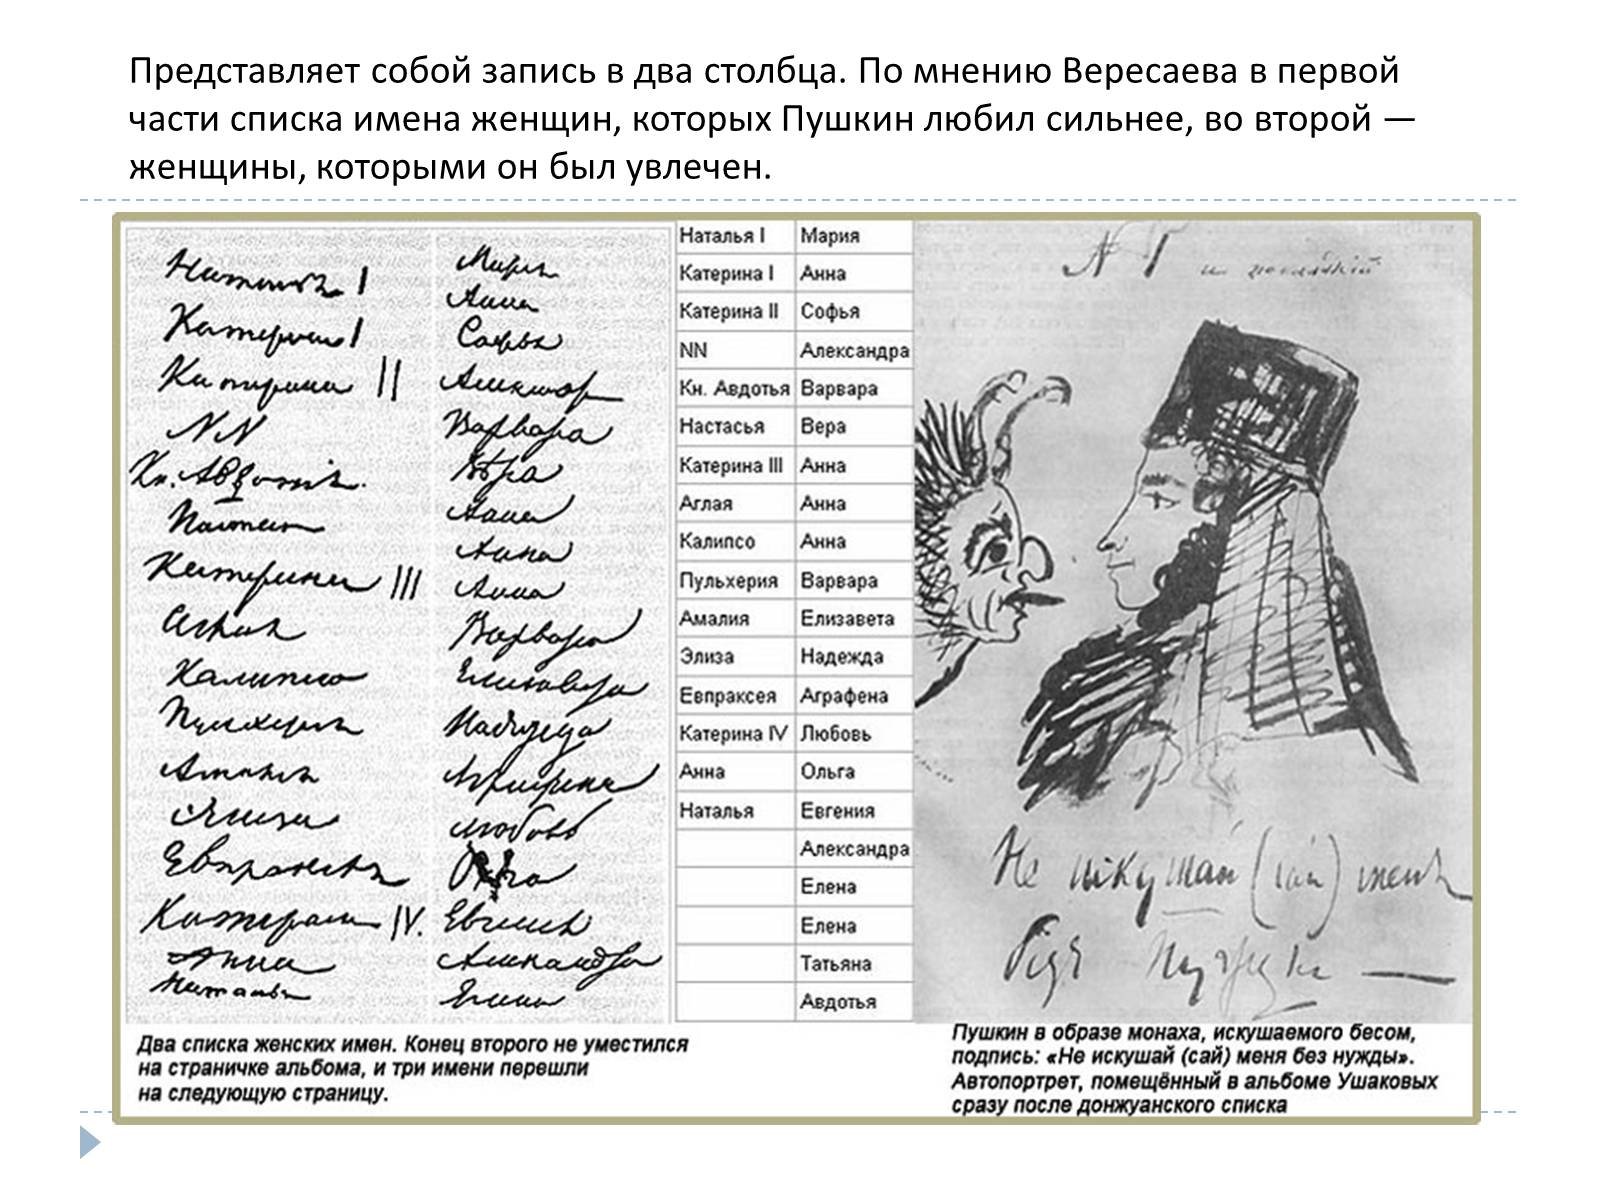 Представляет собой запись в два столбца. По мнению Вересаева в первой
части списка имена женщин, которых Пушкин любил сильнее, во второй —
женщины, которыми он был увлечен.
Наталья I
Катерина I
Катерина II
NN
Кн. Авдотья
Настасья
Катерина III
Аглая
Калипсо
Пульхерия
Амалия
Элиза
Евпраксея
Катерина IV.
Анна
Наталья
Мария
Анна
Софья
Александр
Варвара
Вѣра
Анна
Анна
Анна
Варвара
Елизавета
Надежда
Аграфена
Любовь
Ольга
Евгения
Александра
Елена
Наталья I Мария
Катерина I Анна
Катерина II Софья
NN Александра
Кн. Авдотья Варвара
Настасья Вера
Катерина III Анна
Аглая Анна
Калипсо Анна
Пульхерия Варвара
Амалия Елизавета
Элиза Надежда
Евпраксея Аграфена
Катерина IV Любовь
Анна Ольга
Наталья Евгения
Александра
Елена
Елена
Татьяна
Авдотья
Не искушай (сай) меня
без нужды —
Два списка женских имен. Конец второго не уместился
на страничке альбома, и три имени перешли
на следующую страницу.
Пушкин в образе монаха, искушаемого бесом,
подпись: «Не искушай (сай) меня без нужды».
Автопортрет, помещённый в альбоме Ушаковых
сразу после донжуанского списка